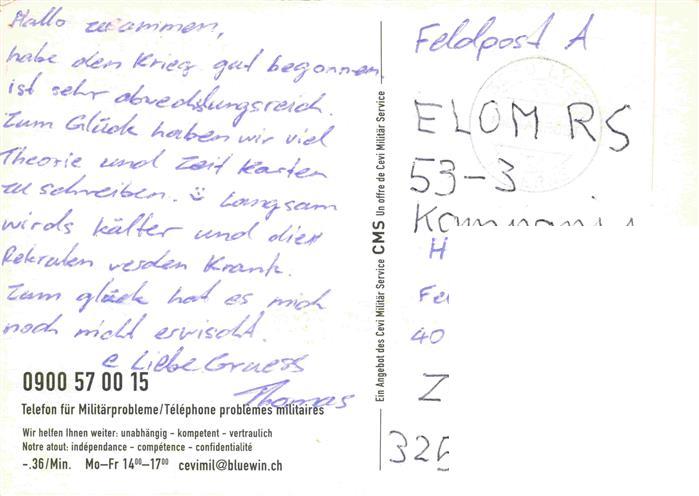 Hallo zusammen,
habe den Krieg gut begonnen
ist sehr abwechslungsreich.
Zum Glück haben wir viel
Theorie und Zeit Karten
zu schreiben. Langsam
wirds kälter und die
Rekruten werden Krank.
Zum glück hat es mich
noch nicht erwischt.
e Liebe Gruess
Thomas
0900 57 00 15
Telefon für Militärprobleme/Téléphone problèmes militaires
Wir helfen Ihnen weiter: unabhängig – kompetent – vertraulich
Notre atout: indépendance – compétence – confidentialité
–.36/Min. Mo–Fr 14⁰⁰–17⁰⁰ cevimil@bluewin.ch
Ein Angebot des Cevi Militär Service CMS Un offre de Cevi Militär Service
Feldpost A
ELOM RS
53-3
Kompanie
H
Fe
40
Z
325